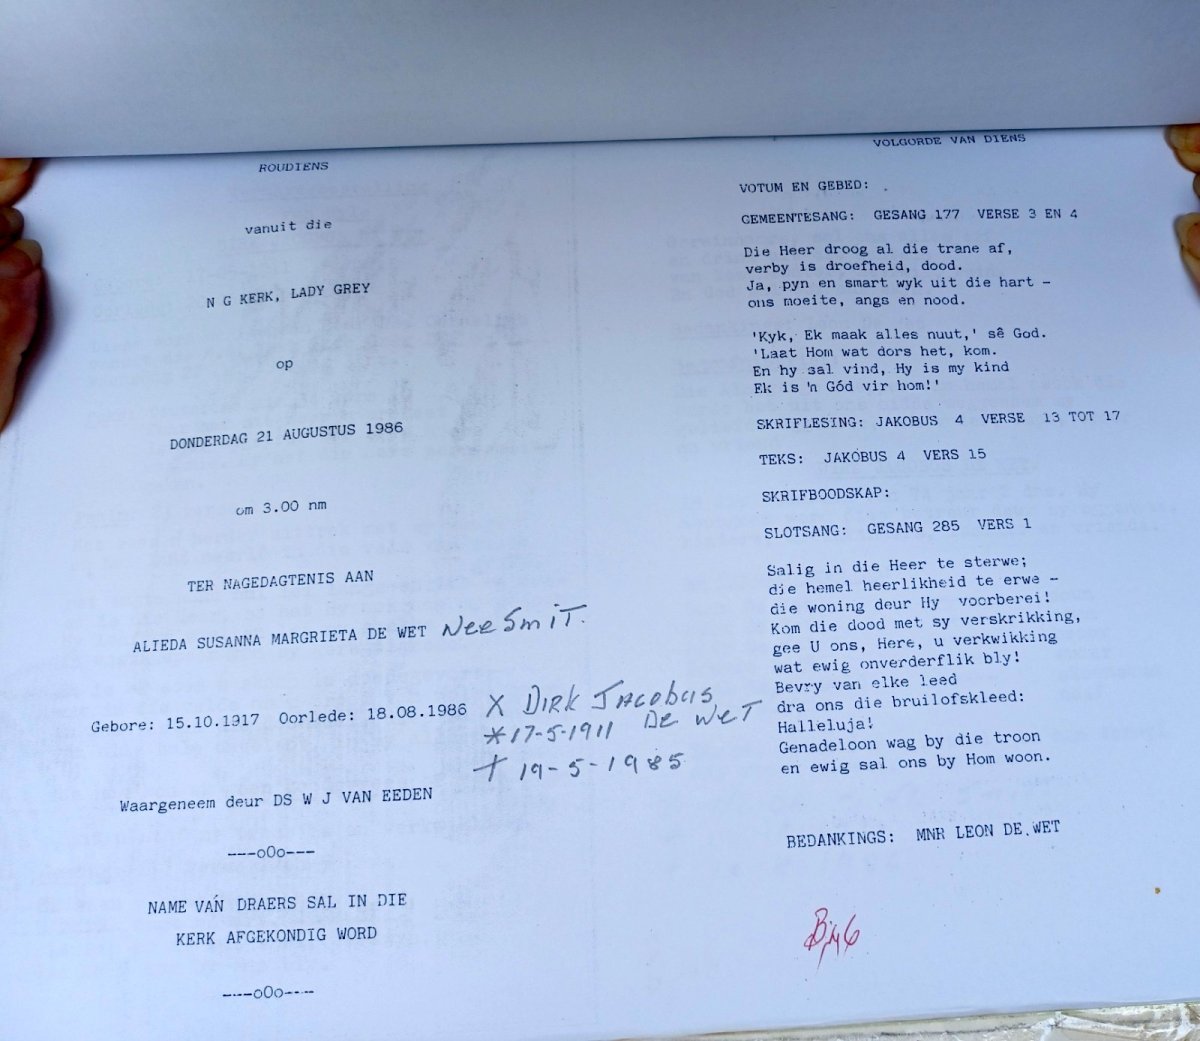 ROUDIENS
vanuit die
N G KERK, LADY GREY
op
DONDERDAG 21 AUGUSTUS 1986
om 3.00 nm
TER NAGEDAGTENIS AAN
ALIEDA SUSANNA MARGRIETA DE WET Nee Smit.
Gebore: 15.10.1917 Oorlede: 18.08.1986 X DIRK JACOBUS
DE WET
*17-5-1911
† 19-5-1985
Waargeneem deur DS W J VAN EEDEN
---oOo---
NAME VAN DRAERS SAL IN DIE
KERK AFGEKONDIG WORD
---oOo---
VOLGORDE VAN DIENS
VOTUM EN GEBED:
GEMEENTESANG: GESANG 177 VERSE 3 EN 4
Die Heer droog al die trane af,
verby is droefheid, dood.
Ja, pyn en smart wyk uit die hart –
ons moeite, angs en nood.
'Kyk, Ek maak alles nuut,' sê God.
'Laat Hom wat dors het, kom.
En hy sal vind, Hy is my kind
Ek is 'n Gód vir hom!'
SKRIFLESING: JAKOBUS 4 VERSE 13 TOT 17
TEKS: JAKOBUS 4 VERS 15
SKRIFBOODSKAP:
SLOTSANG: GESANG 285 VERS 1
Salig in die Heer te sterwe;
die hemel heerlikheid te erwe –
die woning deur Hy voorberei!
Kom die dood met sy verskrikking,
gee U ons, Here, u verkwikking
wat ewig onverderflik bly!
Bevry van elke leed
dra ons die bruilofskleed:
Halleluja!
Genadeloon wag by die troon
en ewig sal ons by Hom woon.
BEDANKINGS: MNR LEON DE WET